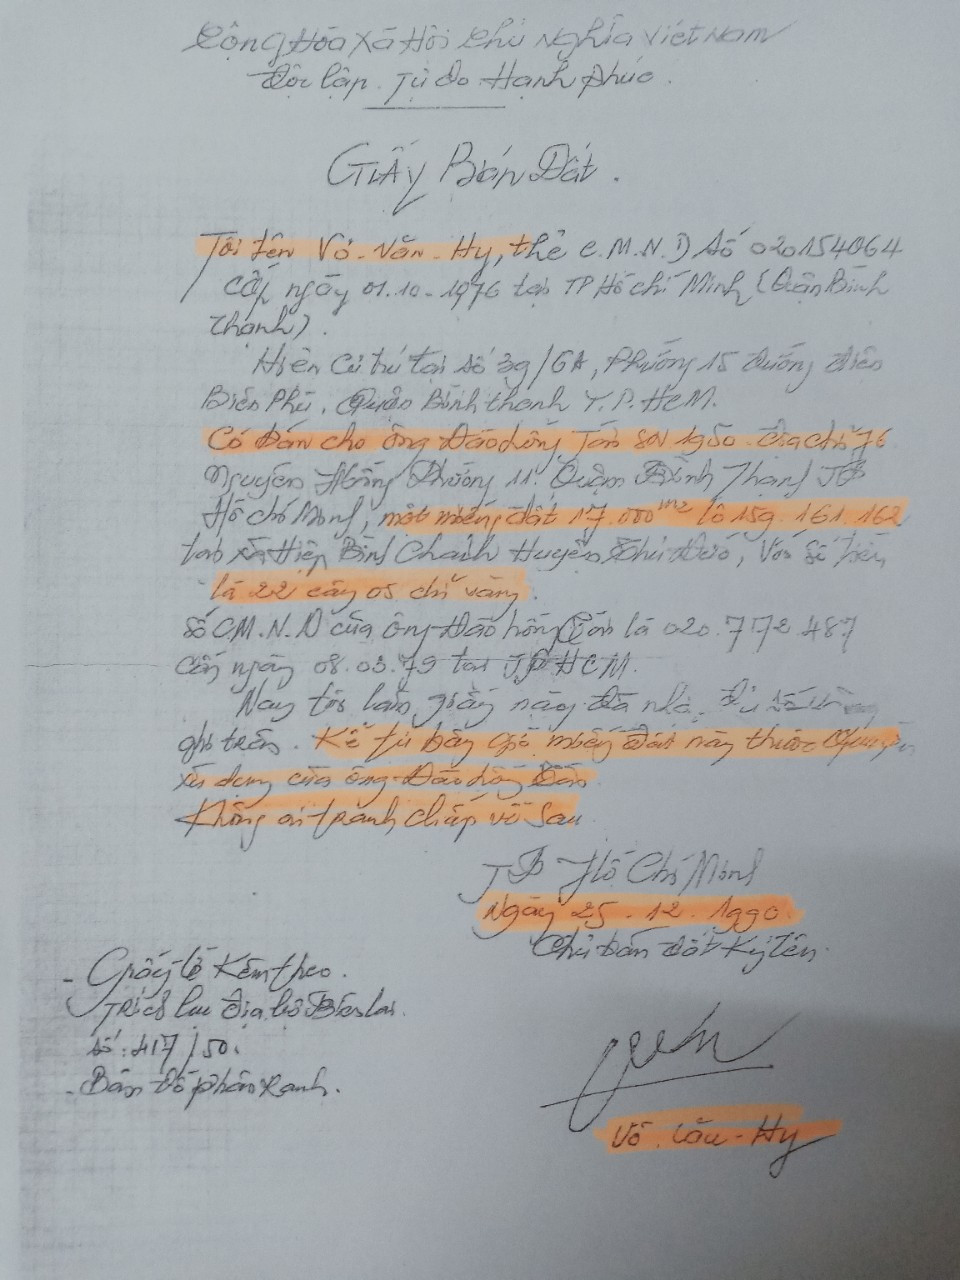 Cộng Hòa Xã Hội Chủ Nghĩa Việt Nam
Độc lập. Tự Do Hạnh Phúc.
Giấy Bán Đất.
Tôi tên Võ-Văn-Hy, thẻ C.M.N.D Số 020154064
cấp ngày 01.10-1976 tại TP Hồ chí Minh (Quận Bình
Thạnh).
Hiện Cư trú tại số 39/6A, Phường 15 đường Điện
Biên Phủ, Quận Bình thạnh T.P. HCM.
Có bán cho ông Đào hồng 1950. địa chỉ 76
Nguyễn Phường 11. Quận Bình Thạnh TP
Hồ chí Minh, một miếng đất 17.000m2 lô 159.161.162
tại xã Hiệp Bình Chánh Huyện Thủ Đức, Với số tiền
là 22 cây 05 chỉ vàng.
Số C.M.N.D của ông Đào hồng là 020.772487
Cấp ngày 08.03.79 tại TP HCM.
Nay tôi làm giấy này đã nhận đủ số
ghi trên. Kể từ bây giờ miếng đất này thuộc Quyền
xử dụng của ông Đào hồng
Không ai tranh chấp về sau
TP Hồ Chí Minh
Ngày 25.12.1990.
Chủ bán đất Ký Tên.
- Giấy tờ Kèm theo.
Trích lục Địa bộ
số: 417/50.
- Bản đồ phân ranh.
Võ. Văn-Hy